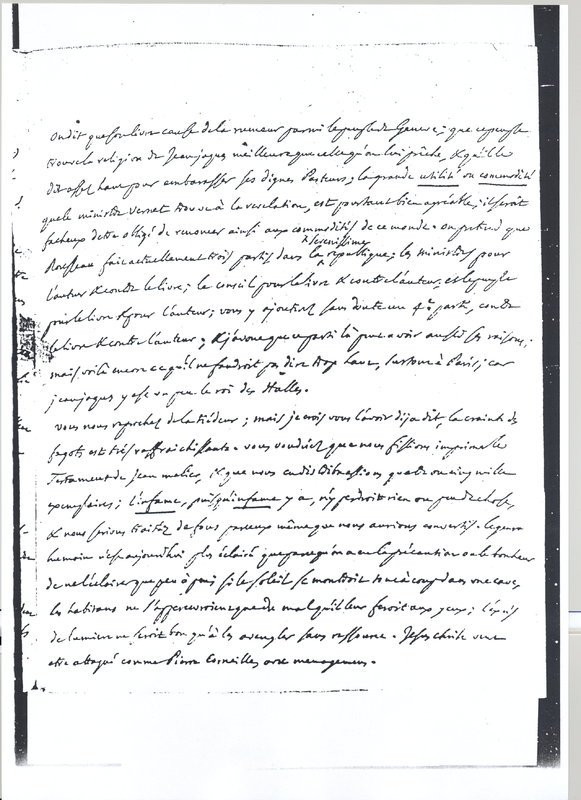 On dit que son livre cause de la rumeur parmi le peuple de Geneve; que ce peuple
trouve la religion de Jean jaques meilleure que celle qu'on lui prêche, & qu'il le
dit assez haut pour embarasser ses dignes Pasteurs; la grande utilité ou commodité
que le ministre Vernet trouve à la revelation, est pourtant bien agréable; il seroit
facheux d'etre obligé de renoncer ainsi aux commodités de ce monde. on pretend que
Rousseau fait actuellement trois partis dans la serenissime republique; les ministres pour
l'auteur & contre le livre; le conseil pour le livre & contre l'auteur, et le peuple
pour le livre & pour l'auteur; vous y ajouterez sans doute un 4e parti, contre
le livre & contre l'auteur, & j'avoue que ce parti là peut avoir aussi ses raisons;
mais voilà encore ce qu'il ne faudroit pas dire trop haut, surtout à Paris; car
jean jaques y est un peu le roi des Halles.
vous nous reprochez de la tiédeur; mais je crois vous l'avoir déja dit, la crainte des
fagots est très raffraichissante. vous voudriez que nous fissions imprimer le
Testament de Jean meslier, & que nous en distribuassions quatre ou cinq mille
exemplaires; l'infame, puisqu'infame y a, n'y perdroit rien ou peu de chose,
& nous serions traitez de fous par ceux même que nous aurions convertis. le genre
humain n'est aujourdhui plus éclairé que parce qu'on a eu la précaution ou le bonheur
de ne l'éclairer que peu à peu. si le soleil se montroit tout à coup dans une cave,
les habitans ne s'appercevroient que du mal qu'il leur feroit aux yeux; l'excès
de lumiere ne seroit bon qu'à les aveugler sans ressource. Jesus christ veut
etre attaqué comme Pierre Corneille, avec menagement.